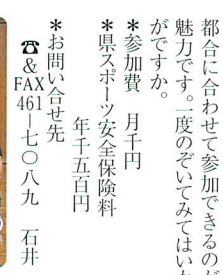 都合に合わせて参加できるのが
魅力です。一度のぞいてみてはいか
がですか。
＊参加費　月千円
＊県スポーツ安全保険料
年千五百円
＊お問い合せ先
☎&FAX
461―七〇八九　石井